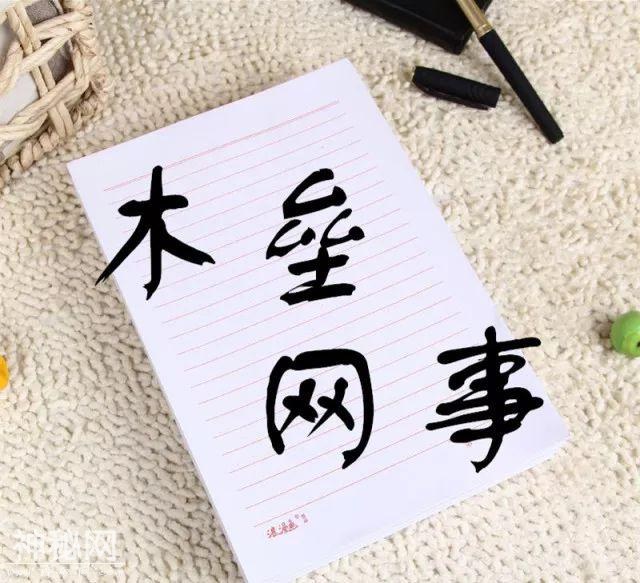 木垒
网事
神秘网